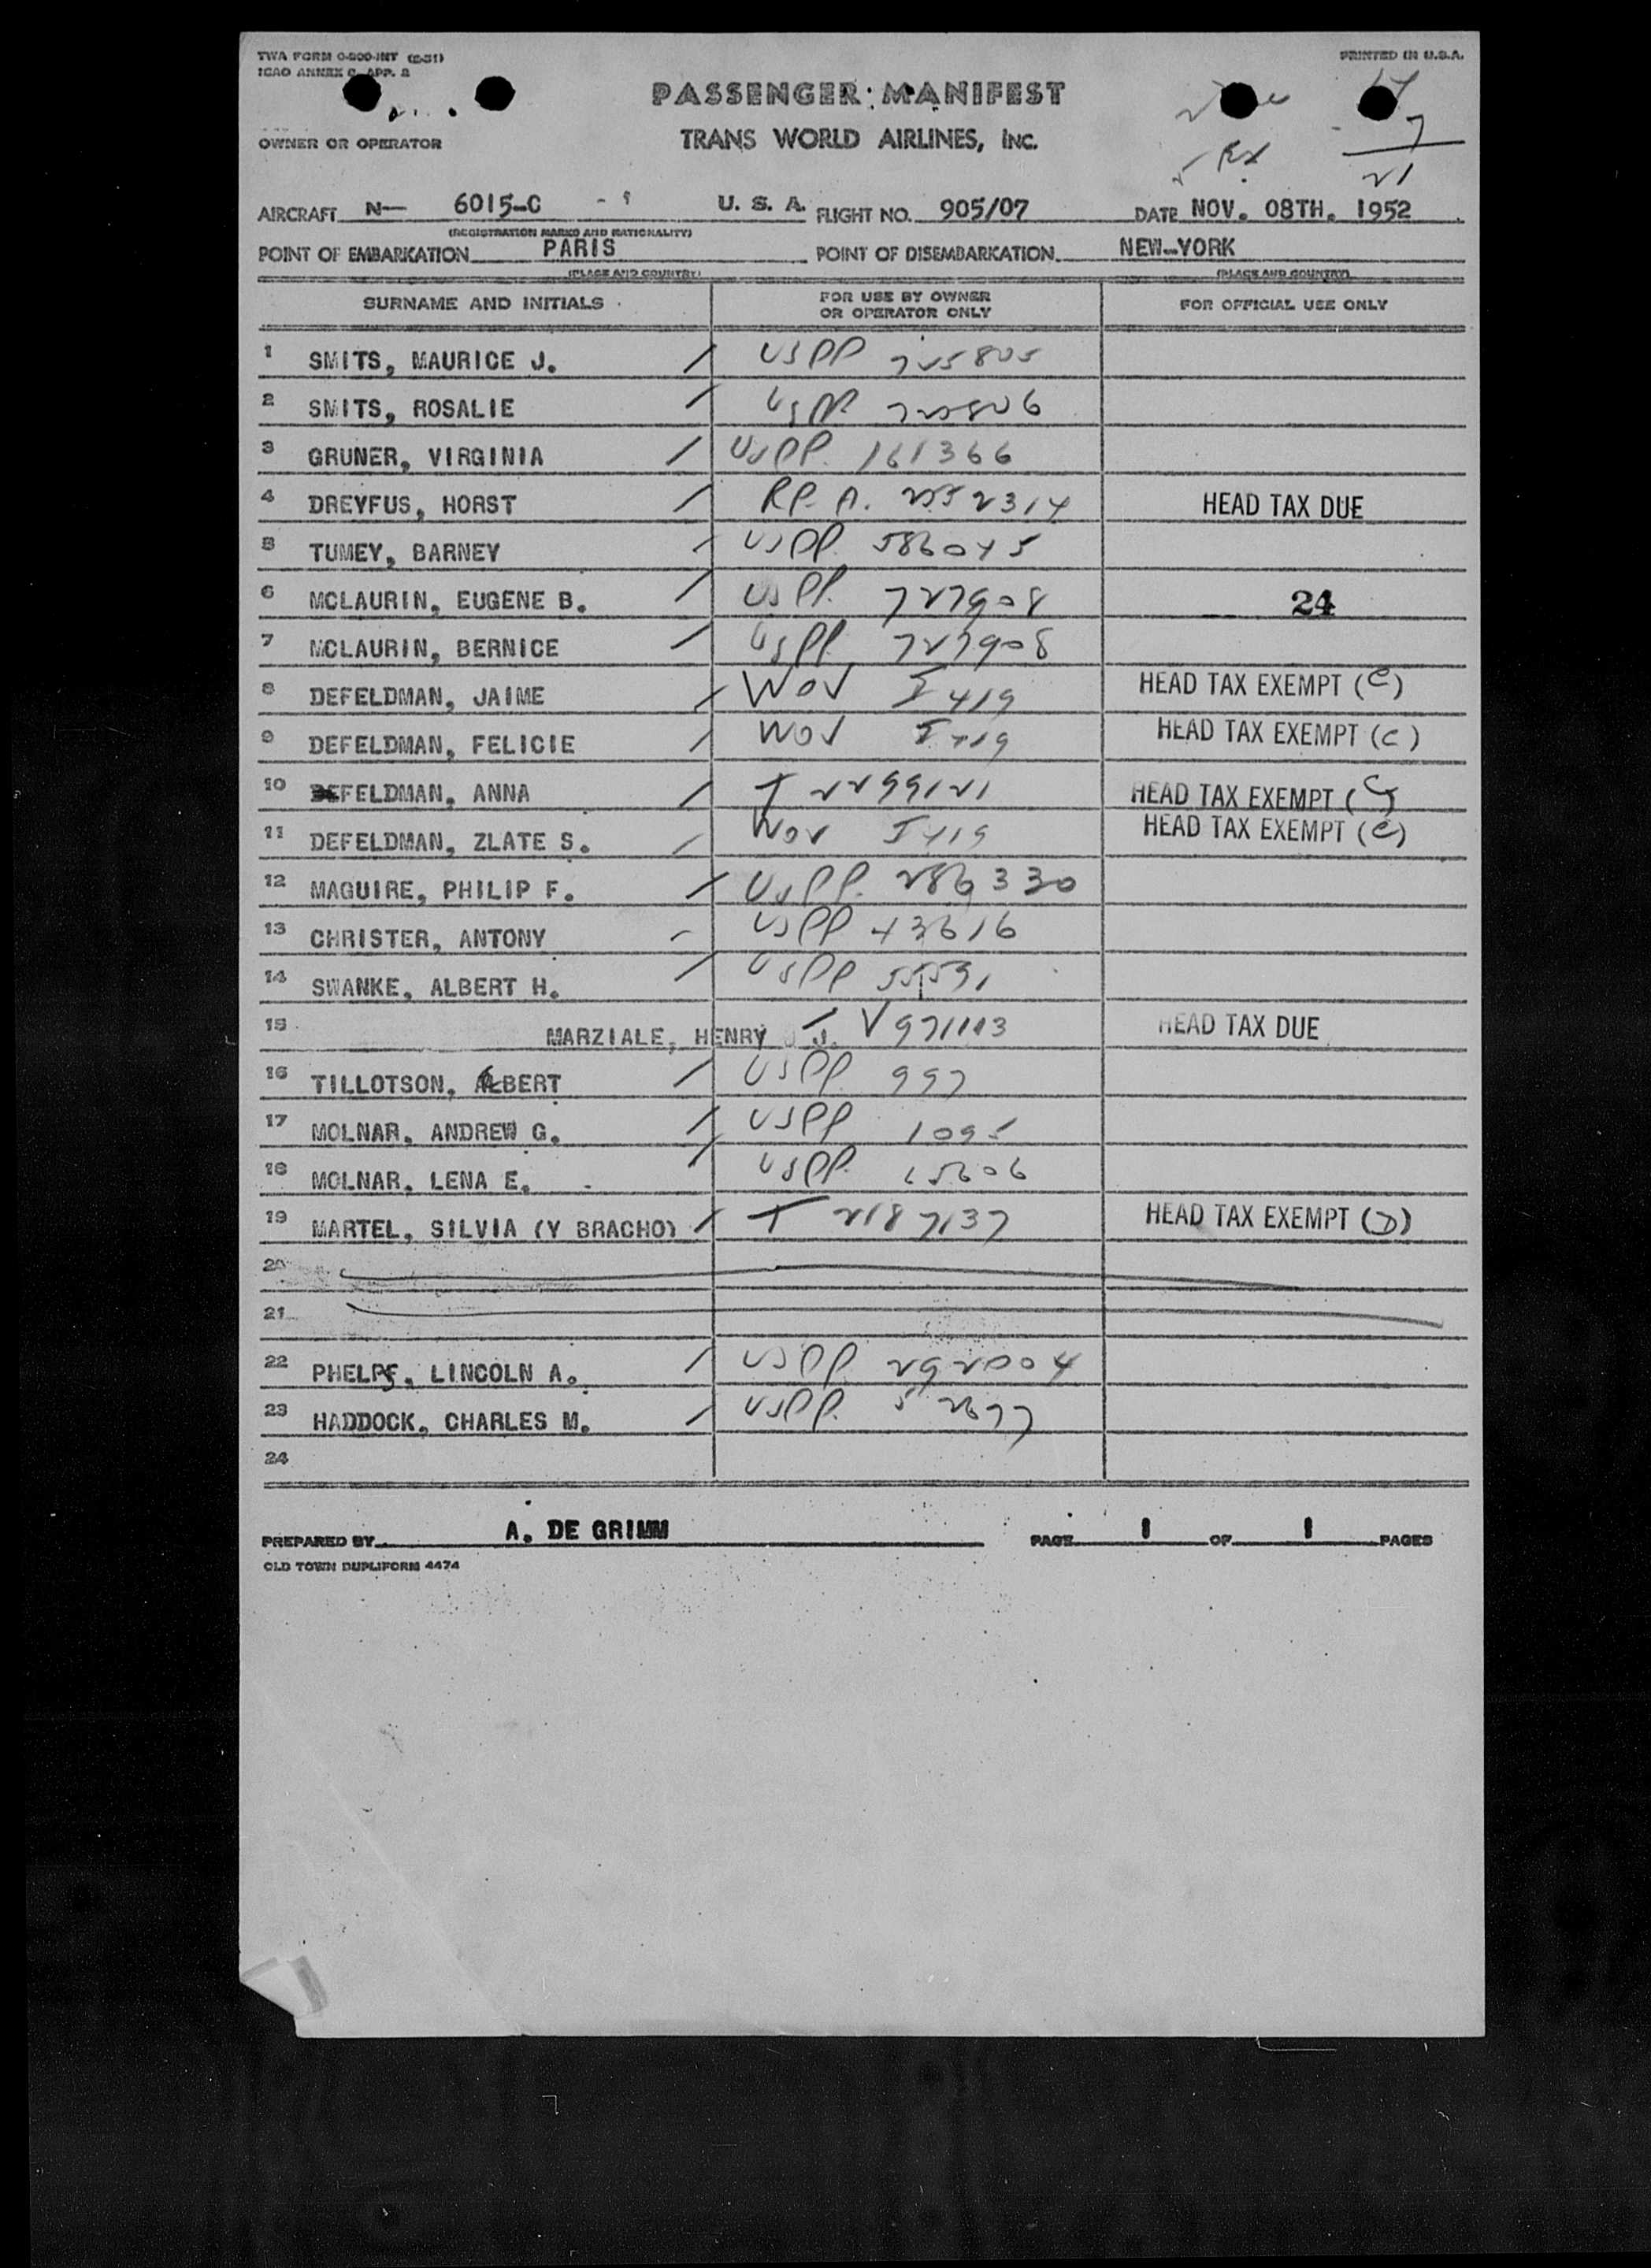 TWA FORM O-800-INT (2-51)
ICAO ANNEX 9, APP. 2
PRINTED IN U.S.A.
PASSENGER MANIFEST
OWNER OR OPERATOR
TRANS WORLD AIRLINES, INC.
7
21
AIRCRAFT N— 6015-C U. S. A. FLIGHT NO. 905/07 DATE NOV. 08TH. 1952
(REGISTRATION MARKS AND NATIONALITY)
POINT OF EMBARKATION PARIS POINT OF DISEMBARKATION NEW-YORK
(PLACE AND COUNTRY) (PLACE AND COUNTRY)
SURNAME AND INITIALS FOR USE BY OWNER OR OPERATOR ONLY FOR OFFICIAL USE ONLY
1 SMITS, MAURICE J. / USPP
2 SMITS, ROSALIE / USPP
3 GRUNER, VIRGINIA / USPP. 161366
4 DREYFUS, HORST / RP. A. 2552314 HEAD TAX DUE
5 TUMEY, BARNEY / USPP. 586045
6 MCLAURIN, EUGENE B. / USPP. 727908 24
7 MCLAURIN, BERNICE / USPP. 727908
8 DEFELDMAN, JAIME / WOV I 419 HEAD TAX EXEMPT (C)
9 DEFELDMAN, FELICIE / WOV I 419 HEAD TAX EXEMPT (C)
10 DEFELDMAN, ANNA / T 2299121 HEAD TAX EXEMPT (C)
11 DEFELDMAN, ZLATE S. / WOV I 419 HEAD TAX EXEMPT (C)
12 MAGUIRE, PHILIP F. / USPP. 286330
13 CHRISTER, ANTONY - USPP 43616
14 SWANKE, ALBERT H. / USPP 55531
15 MARZIALE, HENRY J. V971113 HEAD TAX DUE
16 TILLOTSON, ALBERT / USPP. 997
17 MOLNAR, ANDREW G. / USPP 1095
18 MOLNAR, LENA E. / USPP. 15606
19 MARTEL, SILVIA (Y BRACHO) / T 2187137 HEAD TAX EXEMPT (D)
20
21
22 PHELPS, LINCOLN A. / USPP. 292004
23 HADDOCK, CHARLES M. / USPP.
24
PREPARED BY A. DE GRIMM PAGE 1 OF 1 PAGES
OLD TOWN DUPLIFORM 4474